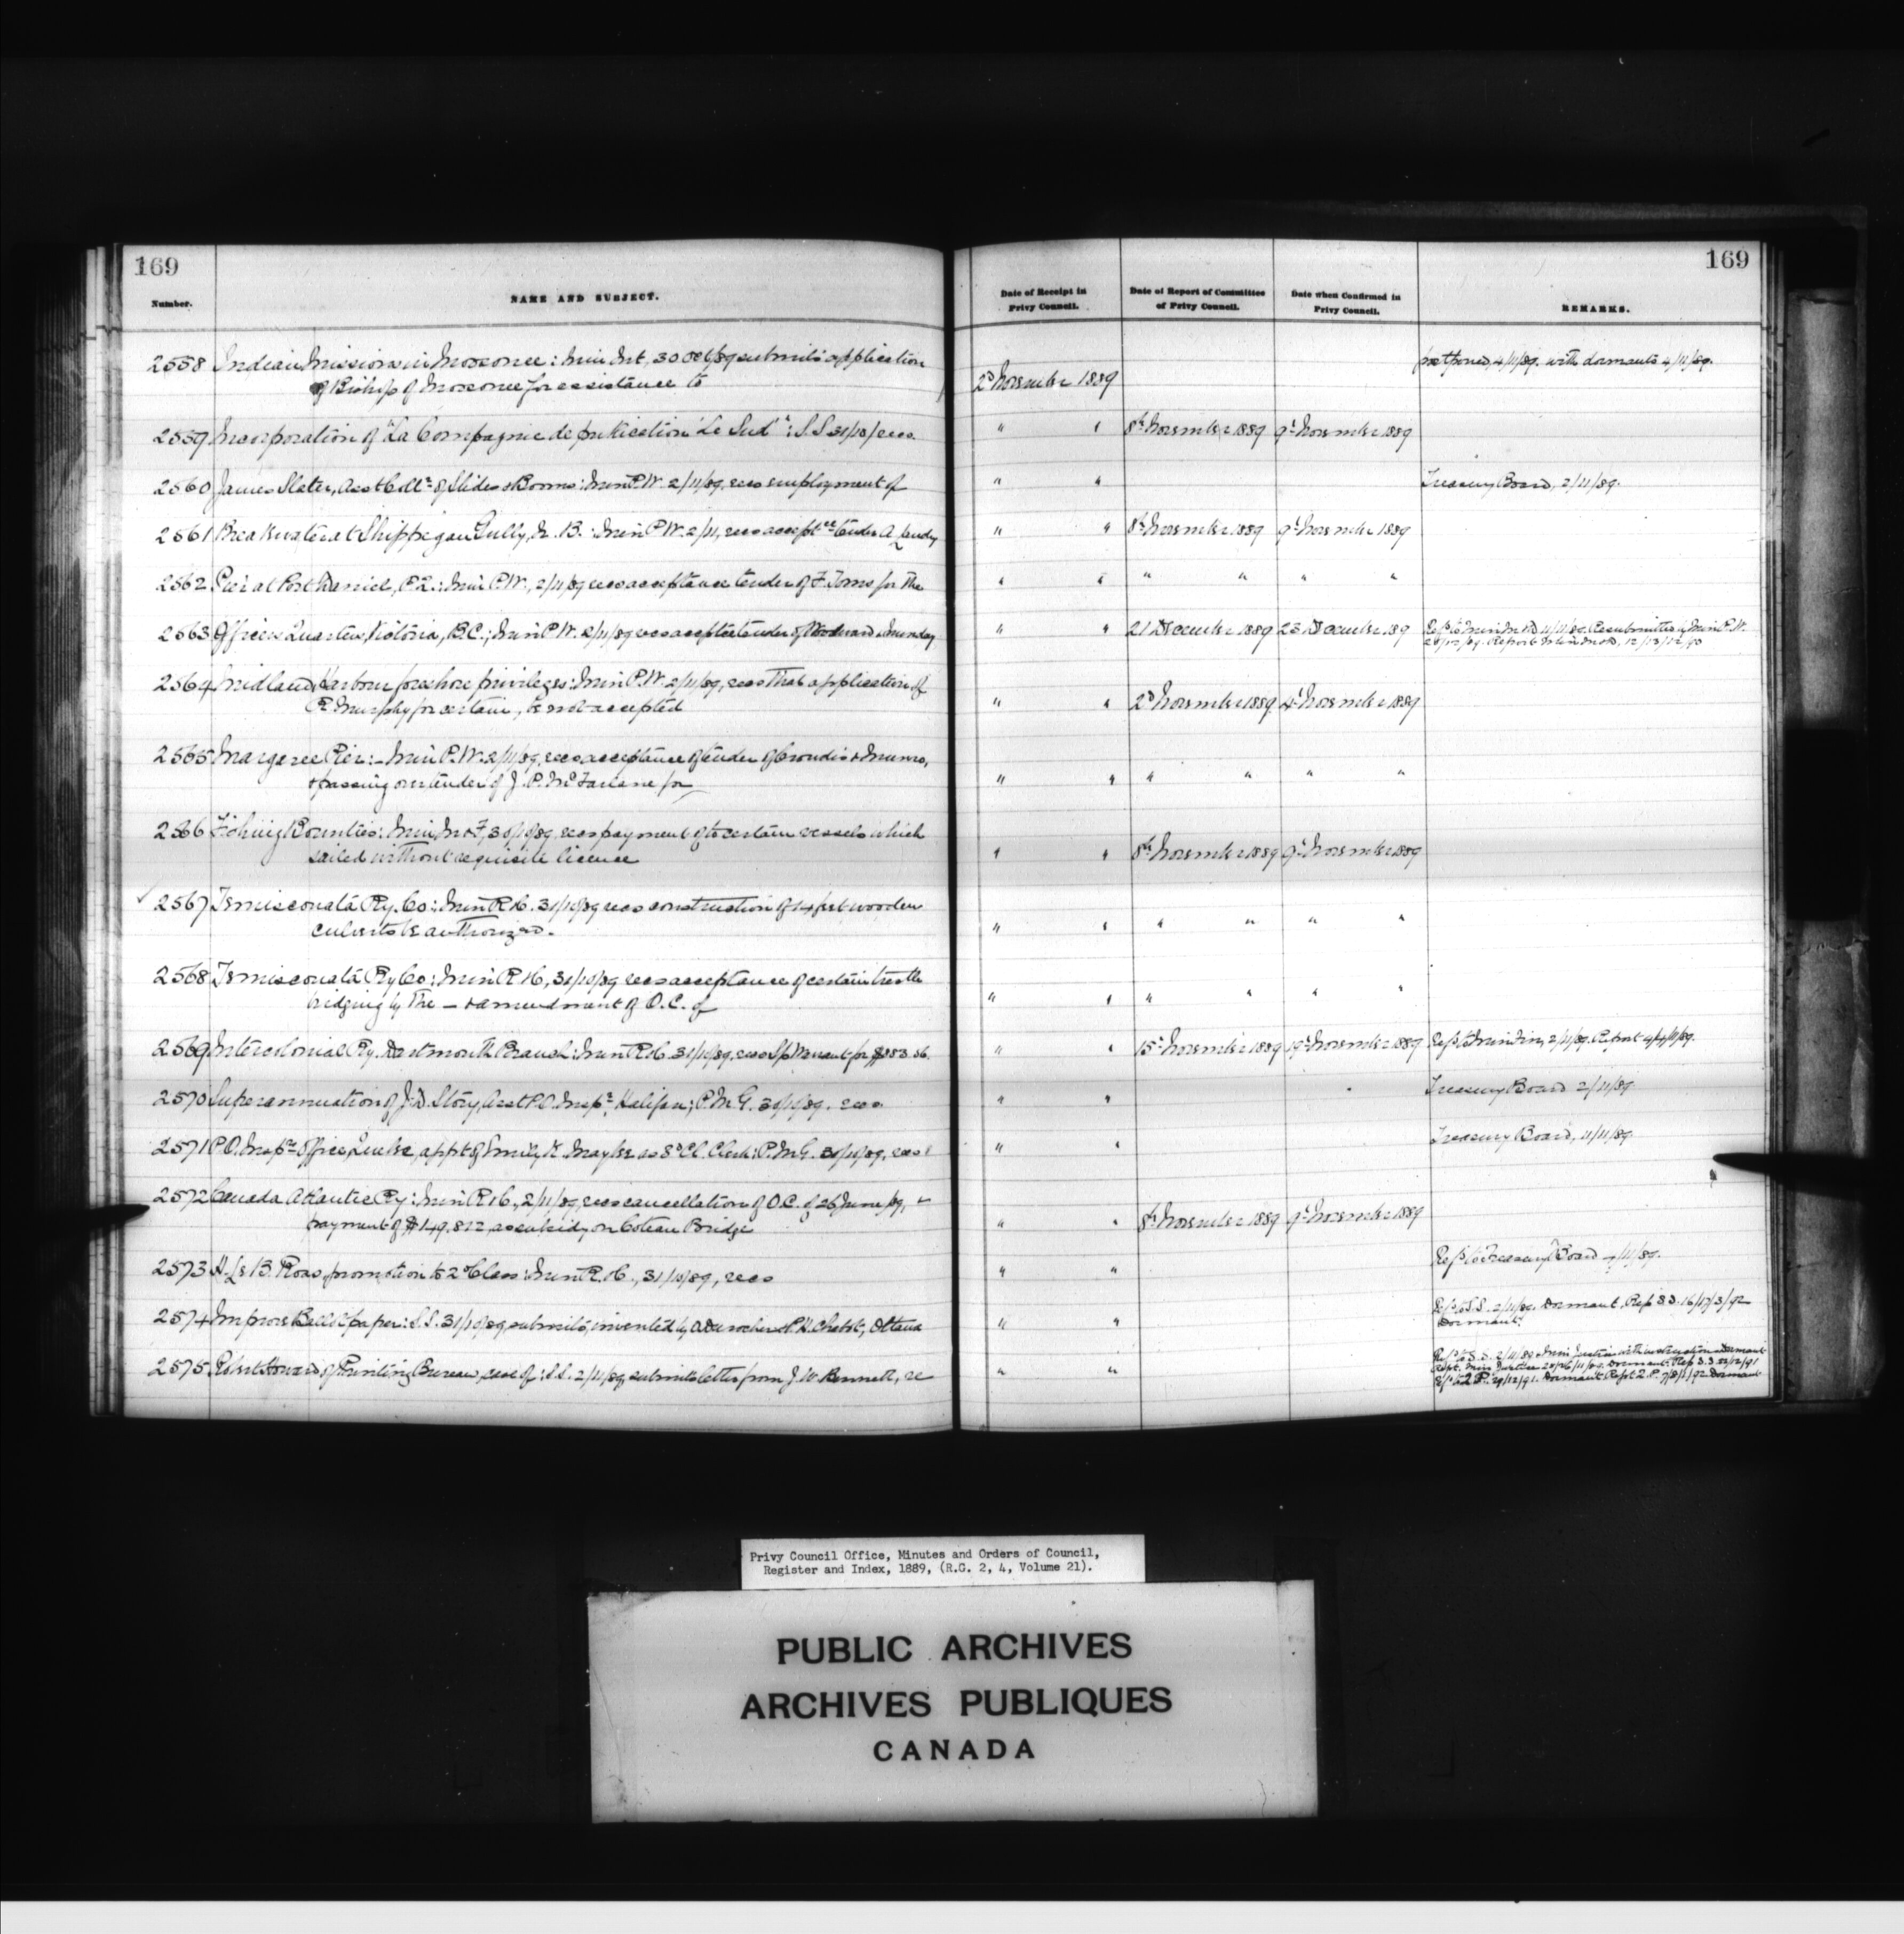 169
169
Number.
NAME AND SUBJECT.
Date of Receipt in
Privy Council.
Date of Report of Committee
of Privy Council.
Date when Confirmed in
Privy Council.
REMARKS.
2558 Indian Missions in Moosonee: Min Int, 30 Oct/89 submits application
of Bishop of Moosonee for assistance to
2d November 1889
postponed 4/11/89. with dormants 4/11/89.
2559 Incorporation of "La Compagnie de publication Le Sud": S.S 31/10/ recs.
" " 8th November 1889 9th November 1889
2560 James Slater, Asst Collr of Slides & Booms: Min P.W. 2/11/89, recs employment of
" " Treasury Board, 2/11/89.
2561 Breakwater at Shippegan Gully, N.B.: Min P.W. 2/11, recs acceptce tender A. Landry
" " 8th November 1889 9th November 1889
2562 Pier at Port Daniel, P.Q.: Min P.W., 2/11/89 recs acceptance tender of F. Toms for the
" " " " " "
2563 Officers Quarters, Victoria, B.C.; Min P.W. 2/11/89 recs acceptce tender of Woodward & Munday
" " 21 December 1889 23 December 1889 Resubmitted by Min P.W.
2564 Midland Harbour foreshore privileges: Min P.W. 2/11/89, recs that application of
P. Murphy for certain, be not accepted
" " 2d November 1889 4th November 1889
2565 Margaree Pier:- Min P.W. 2/11/89, recs acceptance of tender of Croudis & Munro,
& passing over tender of J. P. McFarlane for
" " " " " "
2566 Fishing Bounties: Min M & F, 30/10/89, recs payment of to certain vessels which
sailed without requisite licence
" " 8th November 1889 9th November 1889
2567 Temiscouata Ry. Co: Min R & C. 31/10/89 recs construction of 14 feet wooden
culverts be authorized.
" " " " " "
2568 Temiscouata Ry Co: Min R & C, 31/10/89 recs acceptance of certain trestle
bridging by the — & amendment of O.C. of
" " " " " "
2569 Intercolonial Ry. Dartmouth Branch: Min R & C. 31/10/89, recs Sp. Warrant for
" " 15th November 1889 19th November 1889 Ref. to Min Fin, 2/11/89. Report 4/11/89.
2570 Superannuation of J. D. Story, Asst P.O. Inspr, Halifax; P.M.G. 30/10/89. recs
" " Treasury Board 2/11/89
2571 P.O. Inspr Office, Quebec, appt of Emily K. as 3d Cl. Clerk: P.M.G. 30/10/89, recs
" " Treasury Board, 11/11/89.
2572 Canada Atlantic Ry: Min R & C, 2/11/89, recs cancellation of O.C. of 26 June/89, &
payment of $149.812 as subsidy on Coteau Bridge
" " 8th November 1889 9th November 1889
2573 H. B. Ross, promotion to 2d Class: Min R. & C., 31/10/89, recs
" " Ref. to Treasury Board 7/11/89.
2574 Improved Ballot paper: S.S. 31/10/89 submits, invented by Durocher & P.H. Chabot, Ottawa
" " Ref. to S.S. 2/11/89. Dormant. Rep S.S. 16/17/3/92
Dormant.
2575 Robert Howard of Printing Bureau, case of: S.S. 2/11/89, submits letter from J. W. Bennett, re
" "
Privy Council Office, Minutes and Orders of Council,
Register and Index, 1889, (R.G. 2, 4, Volume 21).
PUBLIC ARCHIVES
ARCHIVES PUBLIQUES
CANADA